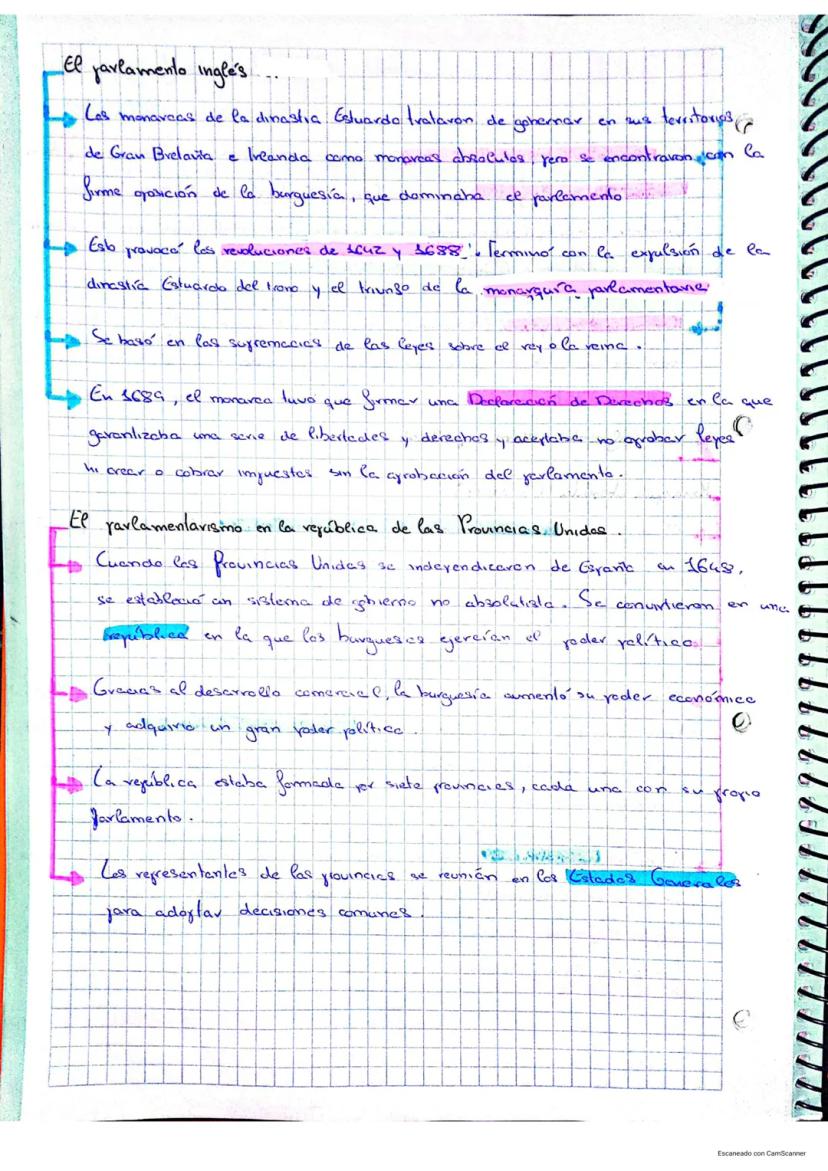 El parlamento inglés...
Los monarcas de la dinastía Estuardo trataron de gobernar en sus territorios
de Gran Bretaña e Irlanda como monarcas absolutos, pero se encontraron con la
firme oposición de la burguesía, que dominaba el parlamento
Esto provocó las revoluciones de 1642 y 1688. Terminó con la expulsión de la
dinastía Estuardo del trono y el triunfo de la monarquía parlamentaria
Se basó en las supremacias de las leyes sobre el rey o la reina.
En 1689, el monarca tuvo que firmar una Declaración de Derechos en la que
garantizaba una serie de libertades y derechos y aceptaba no aprobar leyes
ni crear o cobrar impuestos sin la aprobación del parlamento.
El parlamentarismo en la república de las Provincias Unidas.
Cuando las Provincias Unidas se independizaron de España en 1648,
se estableció un sistema de gobierno no absolutista. Se convirtieron en una
república en la que los burgueses ejercían el poder político
Gracias al desarrollo comercial, la burguesía aumentó su poder económico
y adquirio un gran poder político.
La república estaba formada por siete provincias, cada una con su propio
parlamento.
Los representantes de las provincias se reunían en los Estados Generales
para adoptar decisiones comunes.
Escaneado con CamScanner